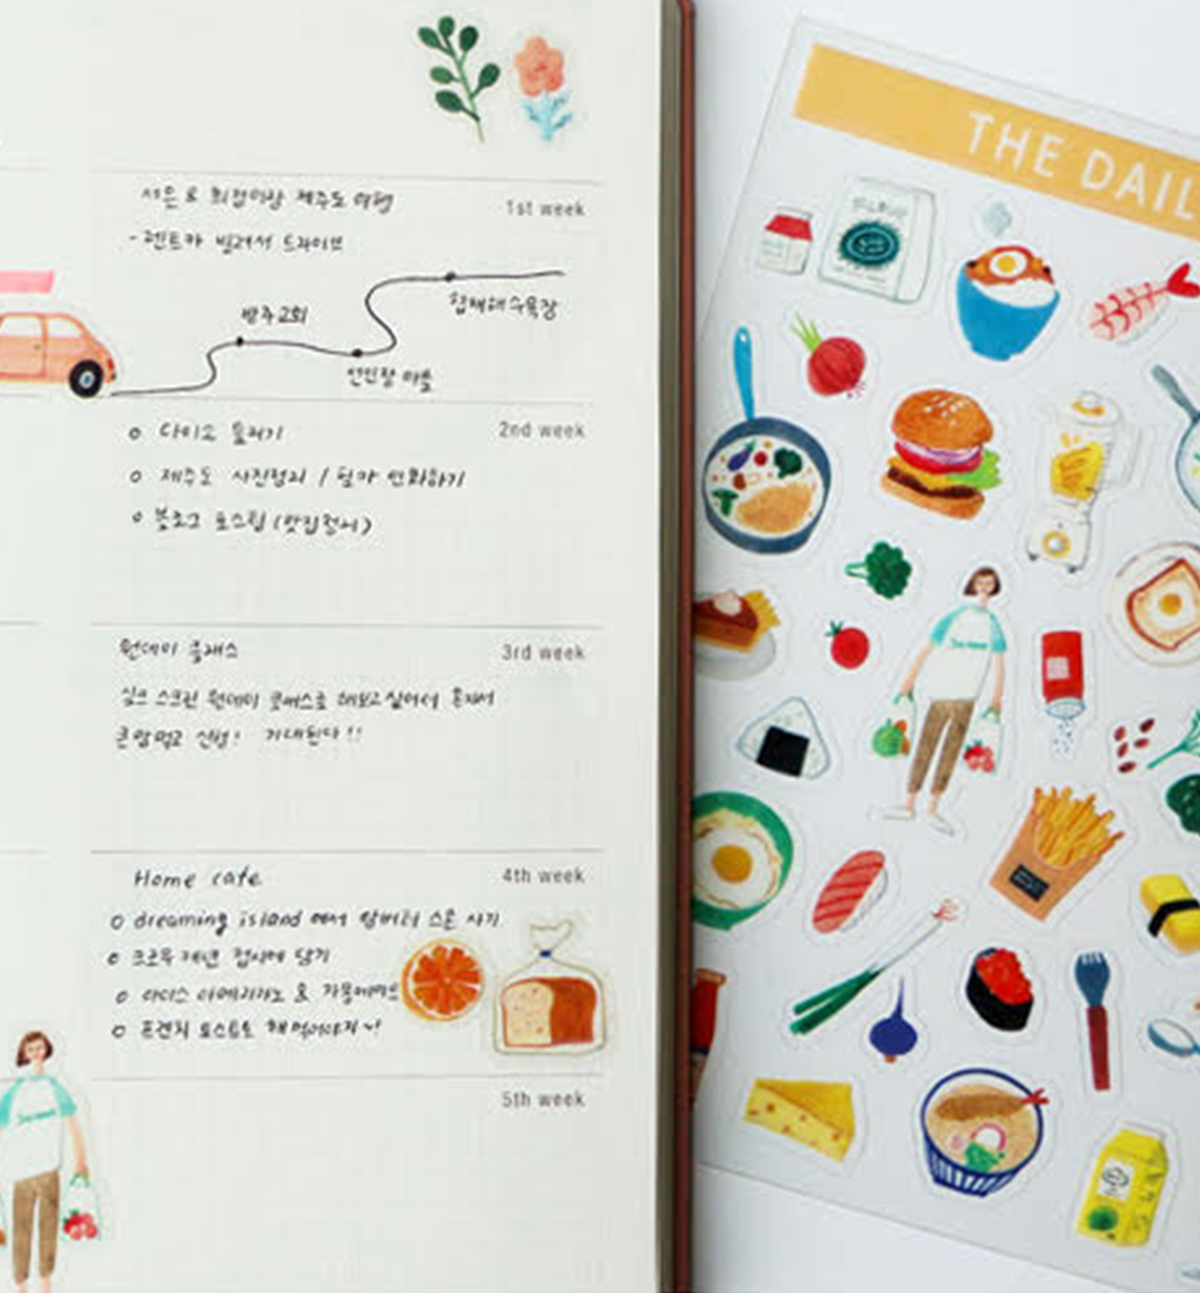 서은 & 희정이랑 제주도 여행
1st week
- 렌트카 빌려서 드라이브
방주교회
협재해수욕장
선인장 마을
2nd week
o 다이소 털러기
o 제주도 사진정리 / 필카 인화하기
o 블로그 포스팅 (맛집정리)
3rd week
원데이 클래스
실크 스크린 원데이 클래스로 해보고싶어서 혼자서
큰맘먹고 신청! 기대된다!!
4th week
Home cafe
o dreaming island 에서 앙버터 스콘 사기
o 크로우캐년 접시에 담기
o 아이스 아메리카노 & 자몽에이드
o 프렌치 토스트도 해먹어야지~!
5th week
THE DAIL